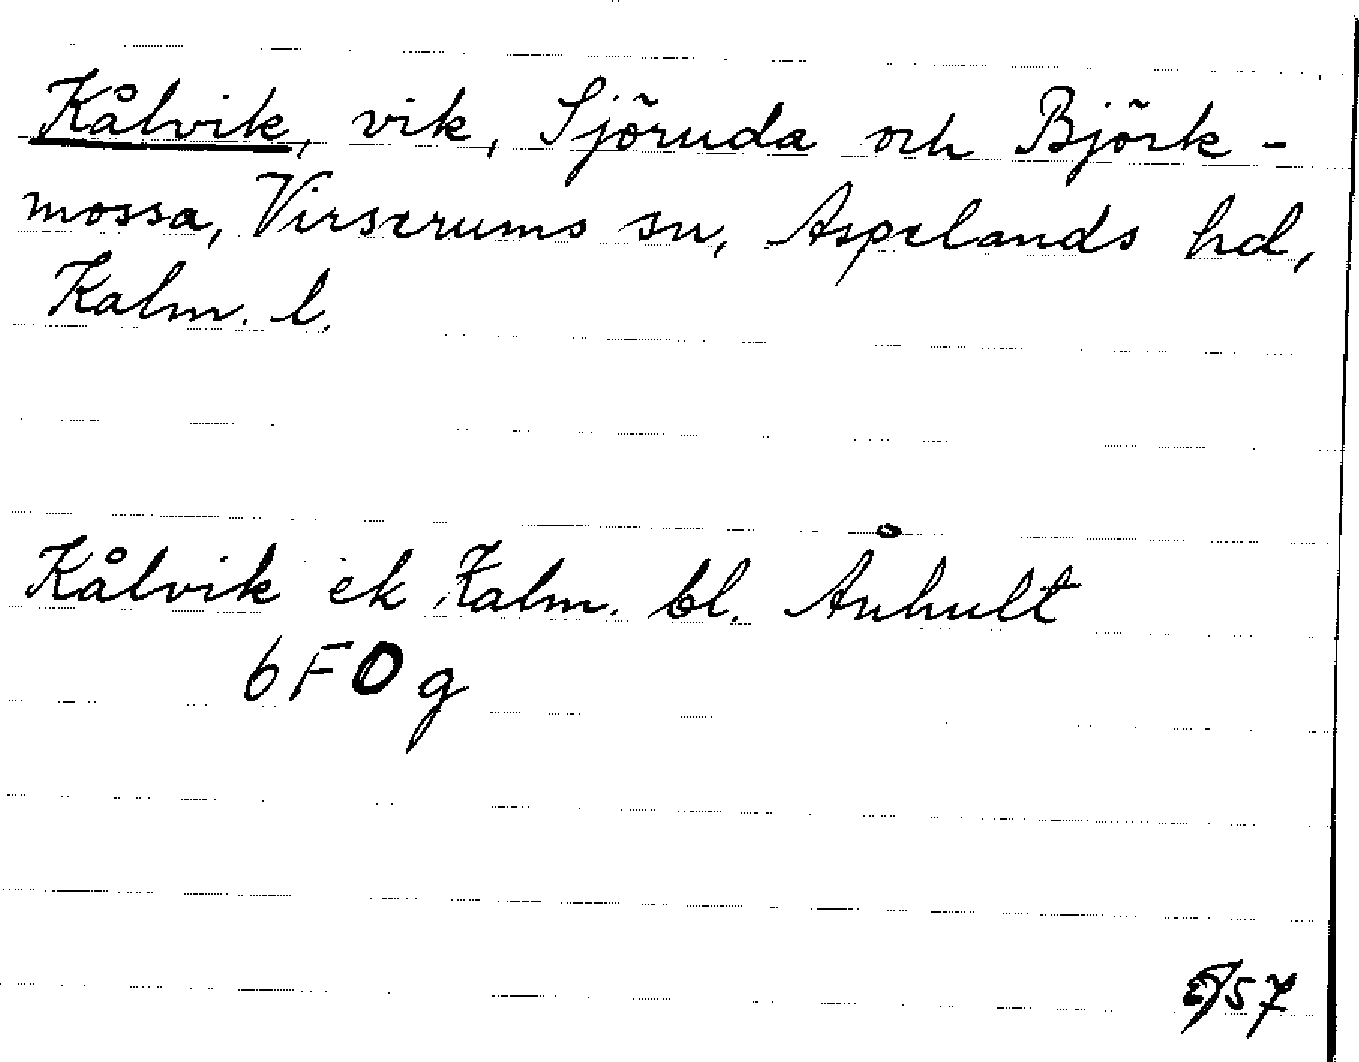 Kålvik, vik, Sjöruda och Björk-
mossa, Virserums sn, Aspelands hd,
Kalm. l.
Kålvik ek Kalm. bl. Ånhult
6F0g
/57